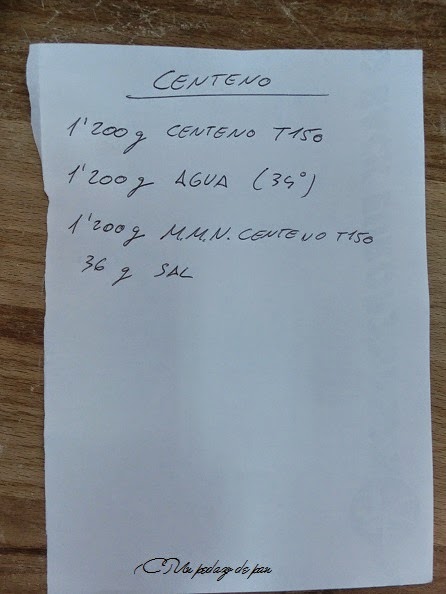 CENTENO
1'200g CENTENO T150
1'200g AGUA (34°)
1'200g M.M.N. CENTENO T150
36 g SAL
Un pedazo de pan